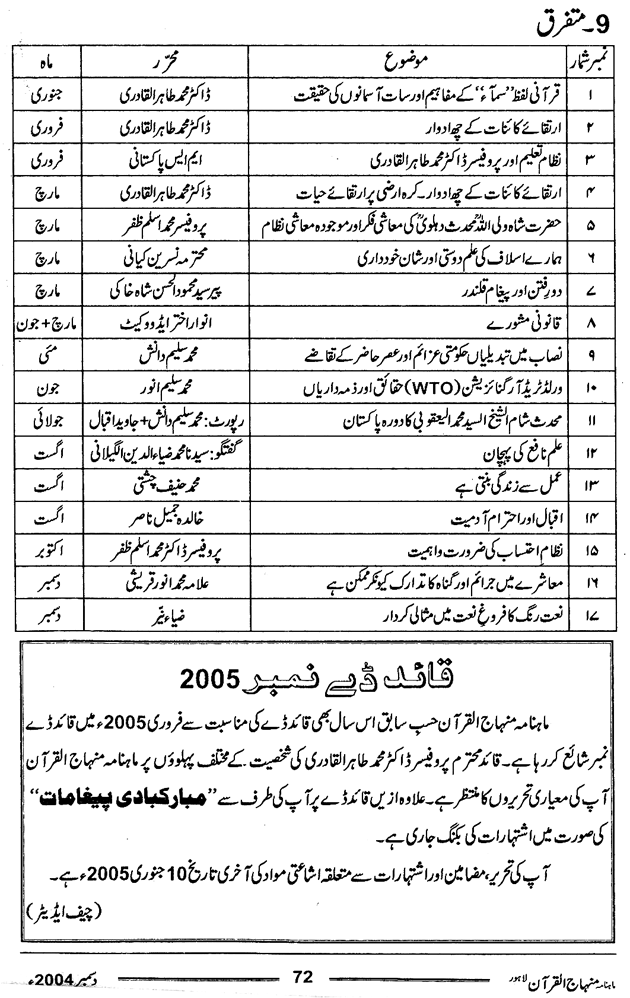 9۔ متفرق
نمبر شمار موضوع محرّر ماہ
۱ قرآنی لفظ ”سمآء“ کے مفاہیم اور سات آسمانوں کی حقیقت ڈاکٹر محمد طاہر القادری جنوری
۲ ارتقائے کائنات کے چھ ادوار ڈاکٹر محمد طاہر القادری فروری
۳ نظام تعلیم اور پروفیسر ڈاکٹر محمد طاہر القادری ایم ایس پاکستانی فروری
۴ ارتقائے کائنات کے چھ ادوار۔ کرہ ارضی پر ارتقائے حیات ڈاکٹر محمد طاہر القادری مارچ
۵ حضرت شاہ ولی اللہؒ محدث دہلویؒ کی معاشی فکر اور موجودہ معاشی نظام پروفیسر محمد اسلم ظفر مارچ
۶ ہمارے اسلاف کی علم دوستی اور شان خودداری محترمہ نسرین کیانی مارچ
۷ دورِ فتن اور پیغام قلندر پیر سید محمود الحسن شاہ خاکی مارچ
۸ قانونی مشورے انوار اختر ایڈووکیٹ مارچ + جون
۹ نصاب میں تبدیلیاں حکومتی عزائم اور عصر حاضر کے تقاضے محمد سلیم دانش مئی
۱۰ ورلڈ ٹریڈ آرگنائزیشن (WTO) حقائق اور ذمہ داریاں محمد سلیم انور جون
۱۱ محدث شام الشیخ السید محمد الیعقوبی کا دورہ پاکستان رپورٹ: محمد سلیم دانش + جاوید اقبال جولائی
۱۲ علم نافع کی پہچان گفتگو: سیدنا محمد ضیاء الدین الگیلانی اگست
۱۳ عمل سے زندگی بنتی ہے محمد حنیف چشتی اگست
۱۴ اقبال اور احترام آدمیت خالدہ جمیل ناصر اگست
۱۵ نظام احتساب کی ضرورت و اہمیت پروفیسر ڈاکٹر محمد اسلم ظفر اکتوبر
۱۶ معاشرے میں جرائم اور گناہ کا تدارک کیونکر ممکن ہے علامہ محمد انور قریشی دسمبر
۱۷ نعت رنگ کا فروغ نعت میں مثالی کردار ضیاء نیّر دسمبر
قائد ڈے نمبر 2005
ماہنامہ منہاج القرآن حسب سابق اس سال بھی قائد ڈے کی مناسبت سے فروری 2005ء میں قائد ڈے
نمبر شائع کر رہا ہے۔ قائد محترم پروفیسر ڈاکٹر محمد طاہر القادری کی شخصیت کے مختلف پہلوؤں پر ماہنامہ منہاج القرآن
آپ کی معیاری تحریروں کا منتظر ہے۔ علاوہ ازیں قائد ڈے پر آپ کی طرف سے ”مبارکبادی پیغامات“
کی صورت میں اشتہارات کی بکنگ جاری ہے۔
آپ کی تحریر، مضامین اور اشتہارات سے متعلقہ اشاعتی مواد کی آخری تاریخ 10 جنوری 2005ء ہے۔
(چیف ایڈیٹر)
ماہنامہ منہاج القرآن لاہور 72 دسمبر 2004ء